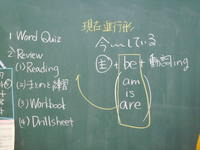 1. Word Quiz
2. Review
(1) Reading
(2) まとめと練習
(3) Workbook
(4) Drillsheet
現在進行形
今~している
主 + be + 動詞ing
am
is
are